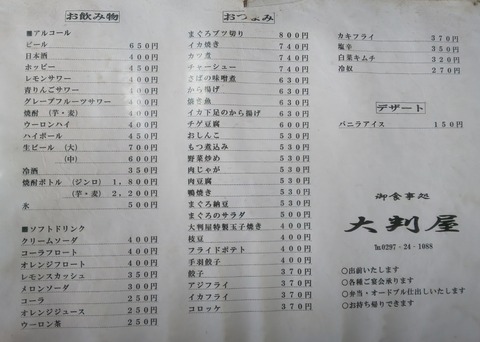 お飲み物
■アルコール
ビール 650円
日本酒 400円
ホッピー 450円
レモンサワー 400円
青りんごサワー 400円
グレープフルーツサワー 400円
焼酎（芋・麦） 400円
ウーロンハイ 400円
ハイボール 450円
生ビール（大） 700円
（中） 600円
冷酒 350円
焼酎ボトル（ジンロ） 1,800円
（芋・麦） 2,200円
氷 500円
■ソフトドリンク
クリームソーダ 400円
コーラフロート 400円
オレンジフロート 400円
レモンスカッシュ 350円
メロンソーダ 300円
コーラ 250円
オレンジジュース 250円
ウーロン茶 250円
おつまみ
まぐろブツ切り 800円
イカ焼き 740円
カツ煮 740円
チャーシュー 740円
さばの味噌煮 630円
から揚げ 630円
焼き魚 630円
イカ下足のから揚げ 630円
チゲ豆腐 630円
おしんこ 530円
もつ煮込み 530円
野菜炒め 530円
肉じゃが 530円
肉豆腐 530円
鴨焼き 530円
まぐろ納豆 530円
まぐろのサラダ 500円
大判屋特製玉子焼き 400円
枝豆 400円
フライドポテト 400円
手羽餃子 400円
餃子 370円
アジフライ 370円
イカフライ 370円
コロッケ 370円
カキフライ 370円
塩辛 350円
白菜キムチ 320円
冷奴 270円
デザート
バニラアイス 150円
御食事処
大判屋
℡0297-24-1088
○出前いたします
○各種ご宴会承ります
○弁当・オードブル仕出しいたします
○お持ち帰りできます